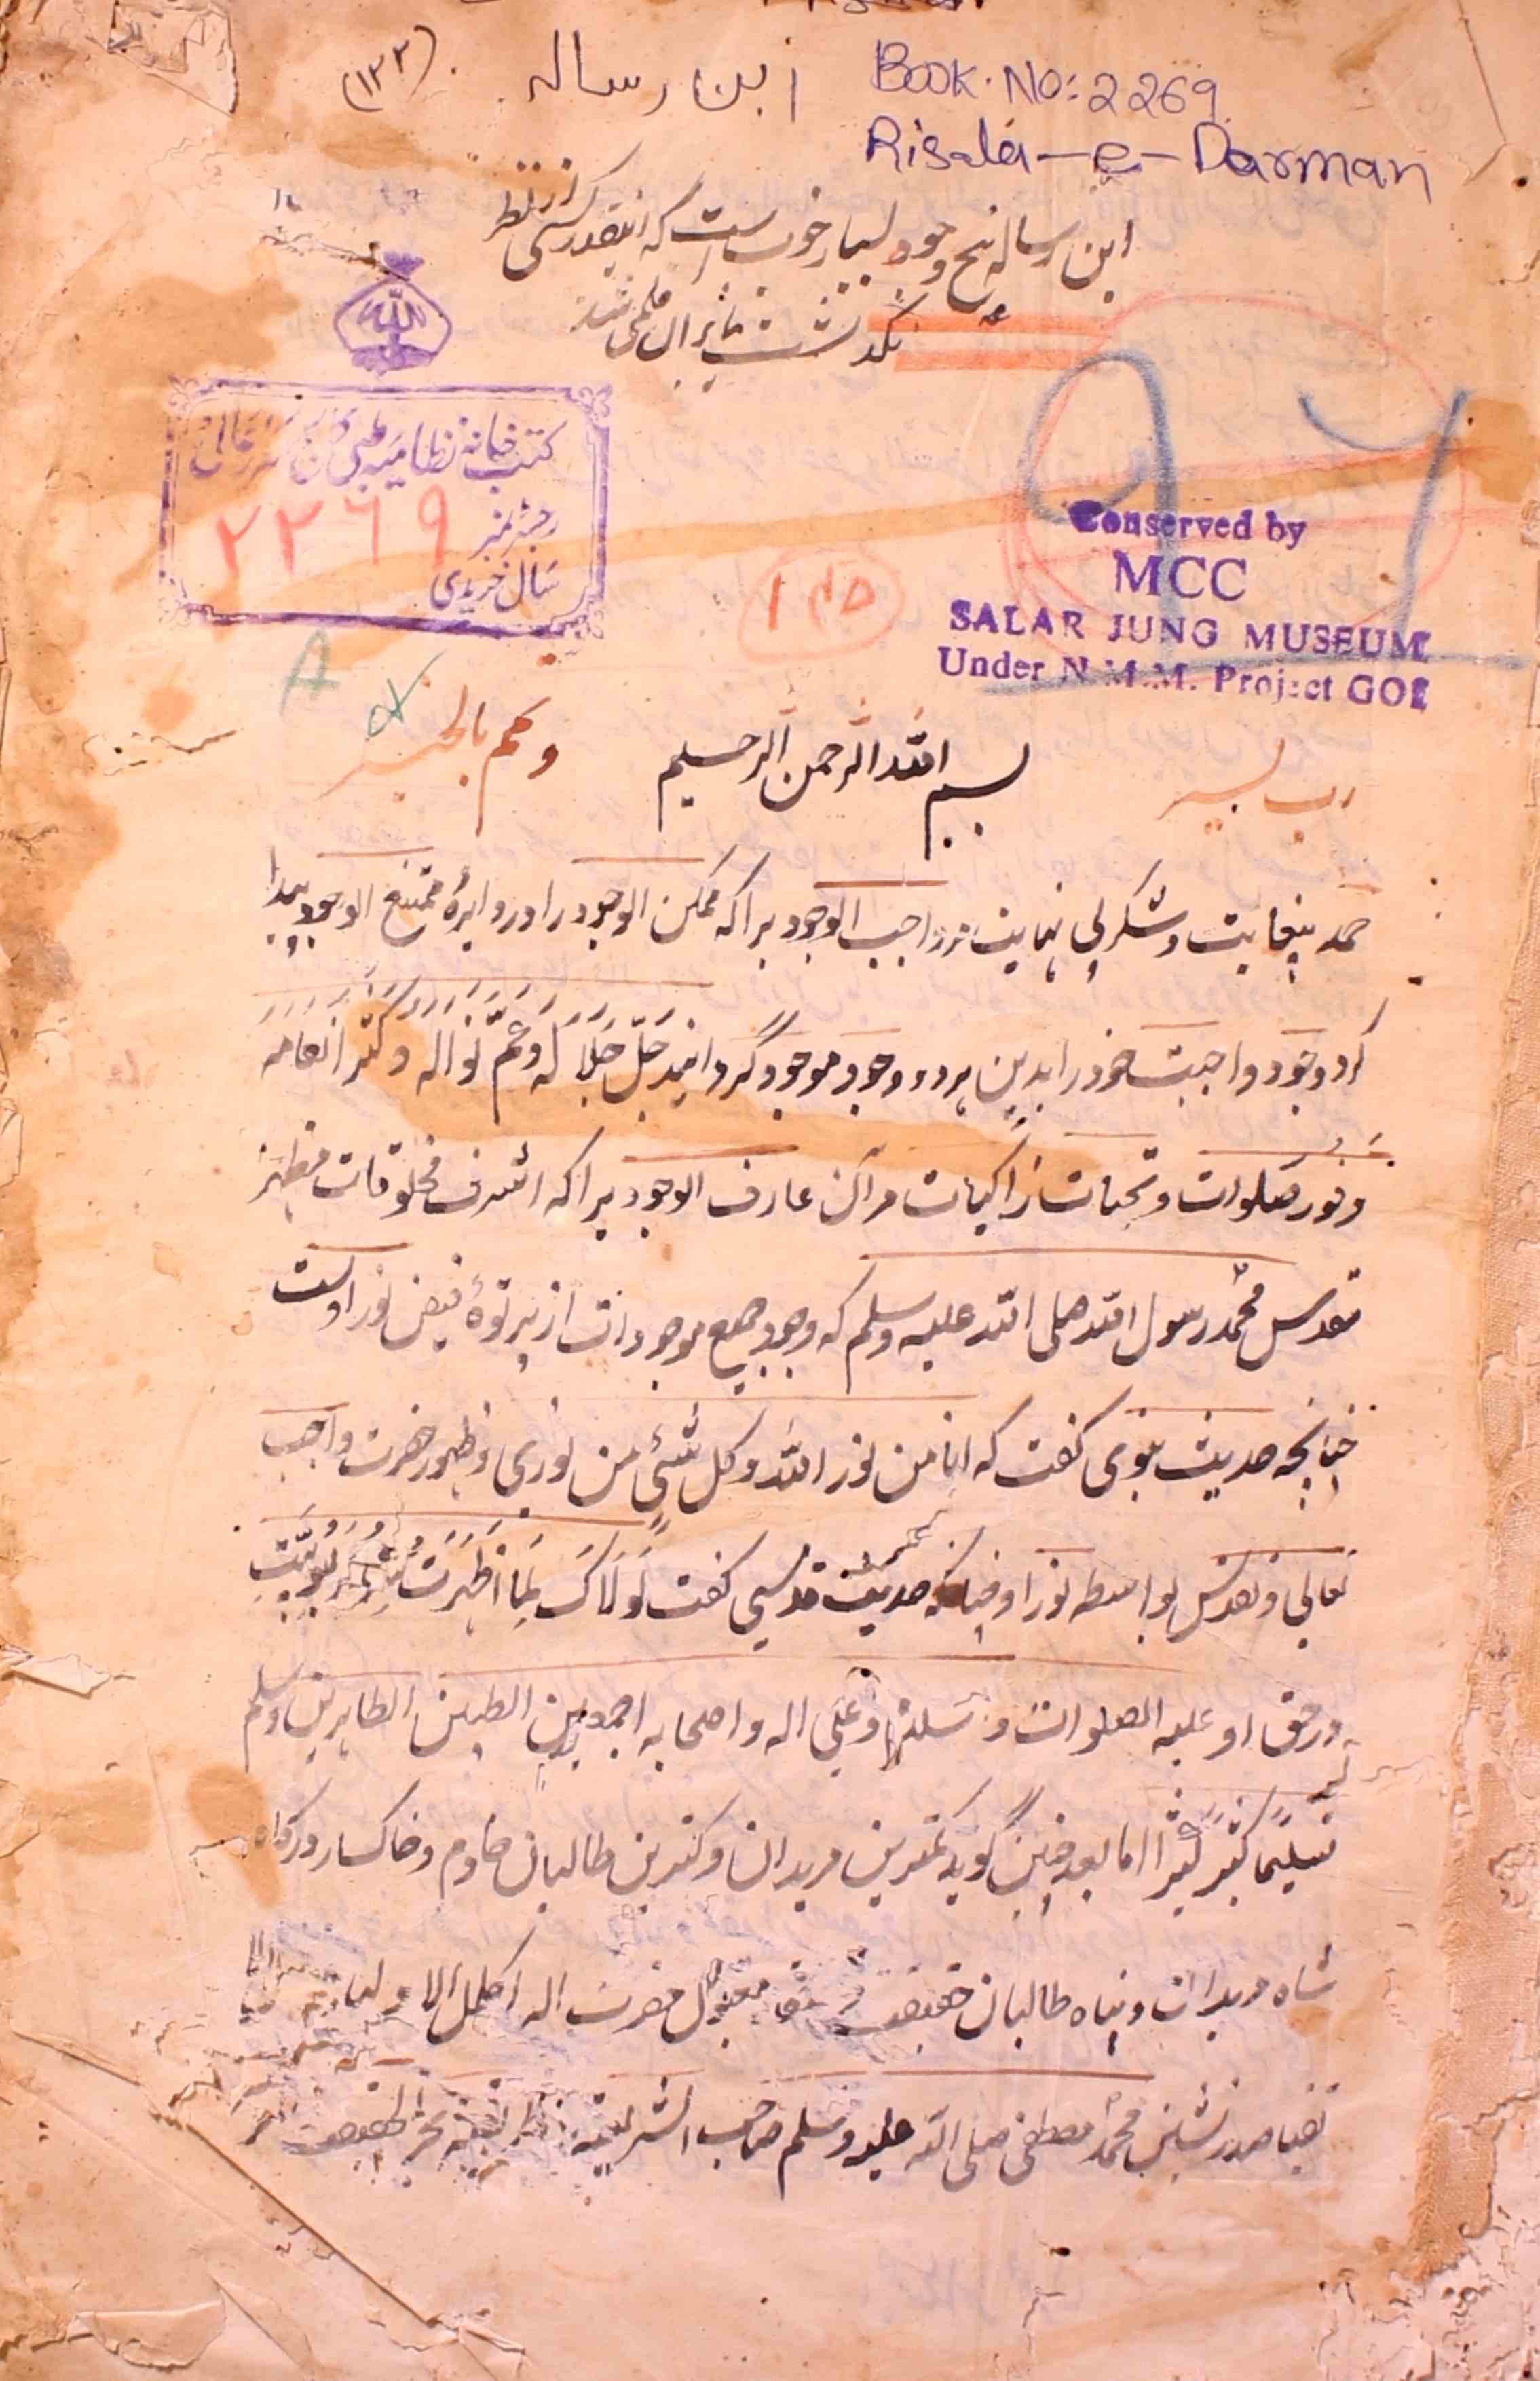 این رساله (۱۳۲)
Book. No: 2269
Risala-e-Darman
این رساله پنج وجود بسیار خوب است که اینقدر کسی از نظر
نگذشت
کتب خانه نظامیه طبی
رجسٹر نمبر ۲۲۶۹
سال خریدی
Conserved by
MCC
SALAR JUNG MUSEUM
Under N.M.M. Project GOI
رب یسر بسم الله الرحمن الرحیم وتمم بالخیر
حمد بیغایت و شکر بی نهایت مر واجب الوجود یرا که ممکن الوجود را در دایرهٔ ممتنع الوجود پیدا
کرد و وجود واجبت خود را بدین هر دو وجود موجود گردانید جَلَّ جَلَالَه وَعَمَّ نَوَاله وکثر انعامه
و نور صلوات و تحیات زاکیات مر آن عارف الوجود یرا که اشرف مخلوقات مظهر
تقدس محمّد رسول الله صلی الله علیه وسلم که وجود جمیع موجودات از پرتوهٔ فیض نور اوست
چنانچه حدیث نبوی گفت که انا من نور الله وکل شیٔ من نوری و ظهور حضرت واجب
تعالی و تقدس بواسطه نور او چنانکه حدیث قدسی گفت لَولَاکَ لِمَا اَظهَرتُ ربوبیت
در حق او علیه الصلوات و وعلی اله واصحابه اجمعین الطیبین الطاهرین وسلم
تسلیمًا کثیرًا کثیرا اما بعد چنین گوید کمترین مریدان و کمترین طالبان خادم و خاکسار درگاه
شاه مریدان و پناه طالبان حقیقت مقبول حضرت اله اکمل الاولیا
صدر نشین محمّد مصطفی صلی الله علیه وسلم صاحب الشریعته بحر الحقیقت